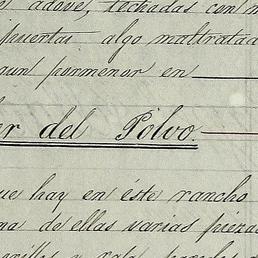 adove, techadas con
puertas algo maltrata
gun pormenor en
er del Polvo.
ue hay en éste rancho
ma de ellas varias pieza